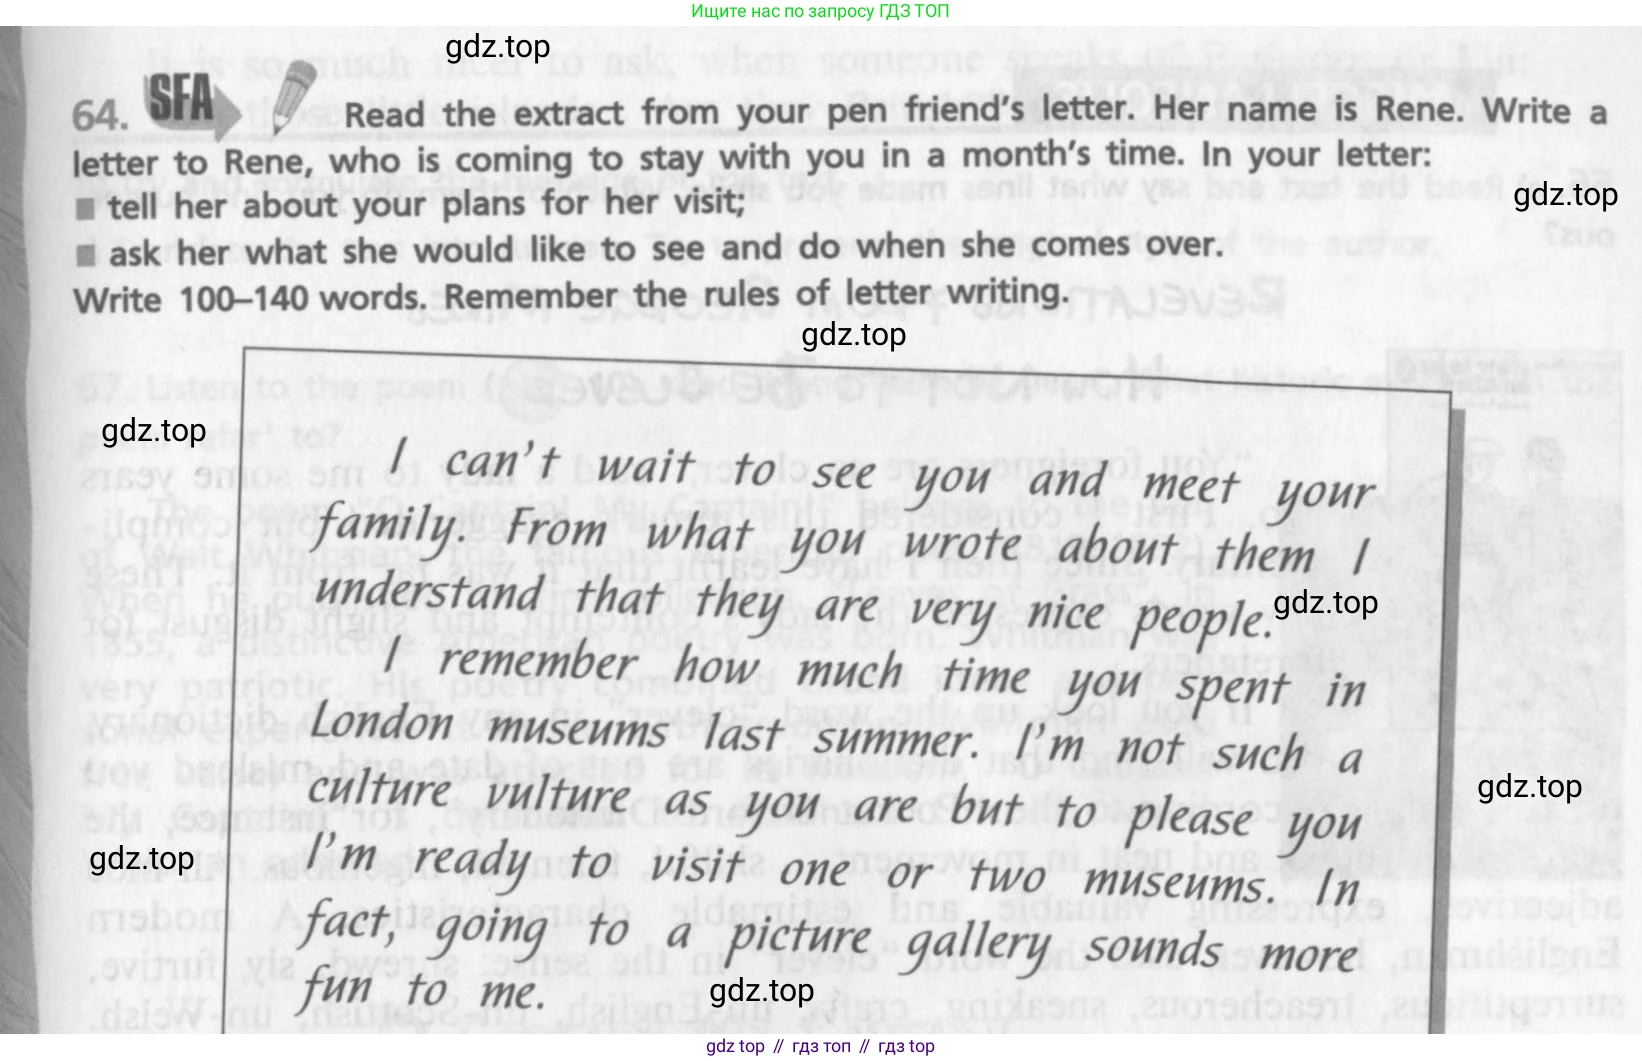 Ищите нас по запросу ГДЗ ТОП
gdz.top
64. SFA Read the extract from your pen friend's letter. Her name is Rene. Write a
letter to Rene, who is coming to stay with you in a month's time. In your letter:
gdz.top
■ tell her about your plans for her visit;
■ ask her what she would like to see and do when she comes over.
Write 100–140 words. Remember the rules of letter writing.
gdz.top
gdz.top
I can't wait to see you and meet your
family. From what you wrote about them I
understand that they are very nice people.
gdz.top
I remember how much time you spent in
London museums last summer. I'm not such a
culture vulture as you are but to please you
gdz.top
I'm ready to visit one or two museums. In
gdz.top
fact, going to a picture gallery sounds more
fun to me.
gdz.top
gdz top // гдз топ // гдз top